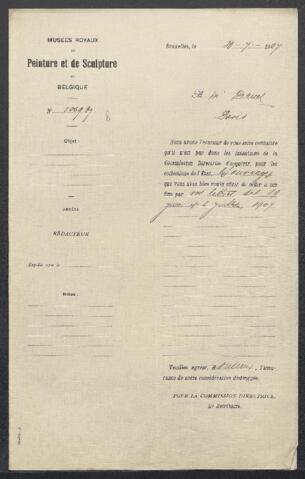 MUSÉES ROYAUX
DE
Peinture et de Sculpture
DE
BELGIQUE
N°
Objet :
Annexe
RÉDACTEUR
Expédié le
Notes :
Bruxelles, le 20-7- 1907
A Mr
Paris
Nous avons l'honneur de vous faire connaître
qu'il n'est pas dans les intentions de la
Commission Directrice d'acquérir, pour les
collections de l'État, les ouvrages
que vous avez bien voulu offrir de céder à cette
fin par vos lettres des
juin et juillet 1907
Veuillez agréer, Monsieur, l'assu-
rance de notre considération distinguée.
POUR LA COMMISSION DIRECTRICE,
Le Secrétaire